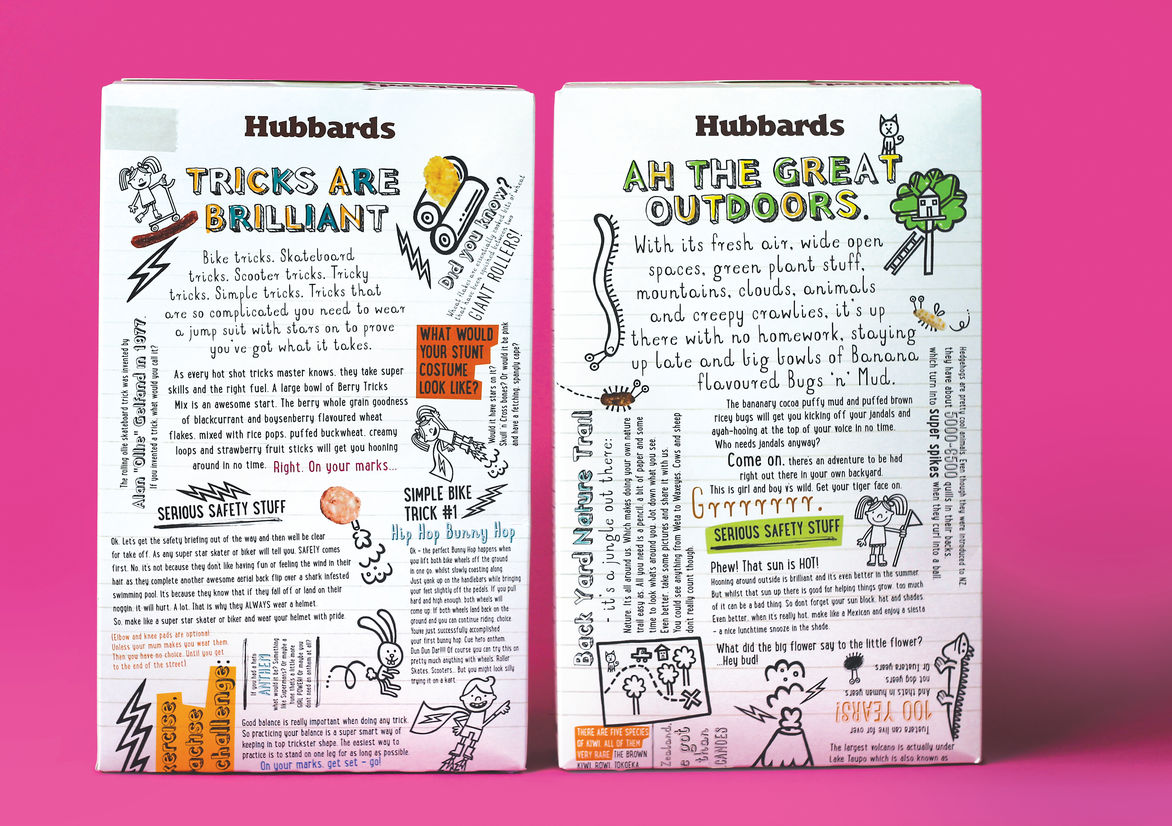 Hubbards
TRICKS ARE
BRILLIANT
Bike tricks. Skateboard
tricks. Scooter tricks. Tricky
tricks. Simple tricks. Tricks that
are so complicated you need to wear
a jump suit with stars on to prove
you've got what it takes.
Did you know?
What flakes are essentially cooked bits of wheat
that have been squished between two
GIANT ROLLERS!
WHAT WOULD
YOUR STUNT
COSTUME
LOOK LIKE?
Would it have stars on it?
Skull 'n Cross bones? Or would it be pink
and have a fetching, spangly cape?
The rolling ollie skateboard trick was invented by
Alan "Ollie" Gelfand in 1977.
If you invented a trick, what would you call it?
As every hot shot tricks master knows, they take super
skills and the right fuel. A large bowl of Berry Tricks
Mix is an awesome start. The berry whole grain goodness
of blackcurrant and boysenberry flavoured wheat
flakes, mixed with rice pops, puffed buckwheat, creamy
loops and strawberry fruit sticks will get you hooning
around in no time. Right. On your marks...
SERIOUS SAFETY STUFF
Ok. Let's get the safety briefing out of the way and then we'll be clear
for take off. As any super star skater or biker will tell you, SAFETY comes
first. No, it's not because they don't like having fun or feeling the wind in their
hair as they complete another awesome aerial back flip over a shark infested
swimming pool. Its because they know that if they fall off or land on their
noggin, it will hurt. A lot. That is why they ALWAYS wear a helmet.
So, make like a super star skater or biker and wear your helmet with pride.
(Elbow and knee pads are optional.
Unless your mum makes you wear them.
Then you have no choice. Until you get
to the end of the street)
SIMPLE BIKE
TRICK #1
Hip Hop Bunny Hop
Ok - the perfect Bunny Hop happens when
you lift both bike wheels off the ground
in one go, whilst slowly coasting along.
Just yank up on the handlebars while bringing
your feet up off the pedals. If you pull
hard and high enough, both wheels will
come up. If both wheels land back on the
ground and you can continue riding, choice.
You've just successfully accomplished
your first bunny hop. Cue hero anthem.
Dun Dun Dar!!! Of course you can try this on
pretty much anything with wheels. Roller
Skates. Scooters. But you might look silly
trying it on a kart.
If you had a hero
ANTHEM
what would it be? Something
like Superman's? Or maybe a
tune that's a little more
GIRL POWER! Or maybe you
dont need an anthem at all?
xercise,
achse
challenge:
Good balance is really important when doing any trick.
So practicing your balance is a super smart way of
keeping in top trickster shape. The easiest way to
practice is to stand on one leg for as long as possible.
On your marks, get set - go!
Hubbards
AH THE GREAT
OUTDOORS.
With its fresh air, wide open
spaces, green plant stuff,
mountains, clouds, animals
and creepy crawlies, it's up
there with no homework, staying
up late and big bowls of Banana
flavoured Bugs 'n' Mud.
The bananary cocoa puffy mud and puffed brown
ricey bugs will get you kicking off your jandals and
ayah-hooing at the top of your voice in no time.
Who needs jandals anyway?
Come on, theres an adventure to be had
right out there in your own backyard.
This is girl and boy vs wild. Get your tiger face on.
Grrrrrrrr.
SERIOUS SAFETY STUFF
Phew! That sun is HOT!
Hooning around outside is brilliant and its even better in the summer.
But whilst that sun up there is good for helping things grow, too much
of it can be a bad thing. So dont forget your sun block, hat and shades.
Even better, when its really hot, make like a Mexican and enjoy a siesta
- a nice lunchtime snooze in the shade.
Hedgehogs are pretty cool animals. Even though they were introduced to NZ
they have about 5000-6500 quills in their backs
which turn into super spikes when they curl into a ball.
Back Yard Nature Trail
- it's a jungle out there:
Nature. It's all around us. Which makes doing your own nature
trail easy as. All you need is a pencil, a bit of paper and some
time to look whats around you. Jot down what you see.
Even better, take some pictures and share it with us.
You could see anything from Weta to Waxeyes. Cows and sheep
dont really count though.
What did the big flower say to the little flower?
...Hey bud!
Tuatara can live for over
100 YEARS!
And thats in human years
not dog years
Or Tuatara years
THERE ARE FIVE SPECIES
OF KIWI, ALL OF THEM
VERY RARE. THE BROWN
KIWI, ROWI, TOKOEKA
Zealand
e got
than
CANOES
The largest volcano is actually under
Lake Taupo which is also known as